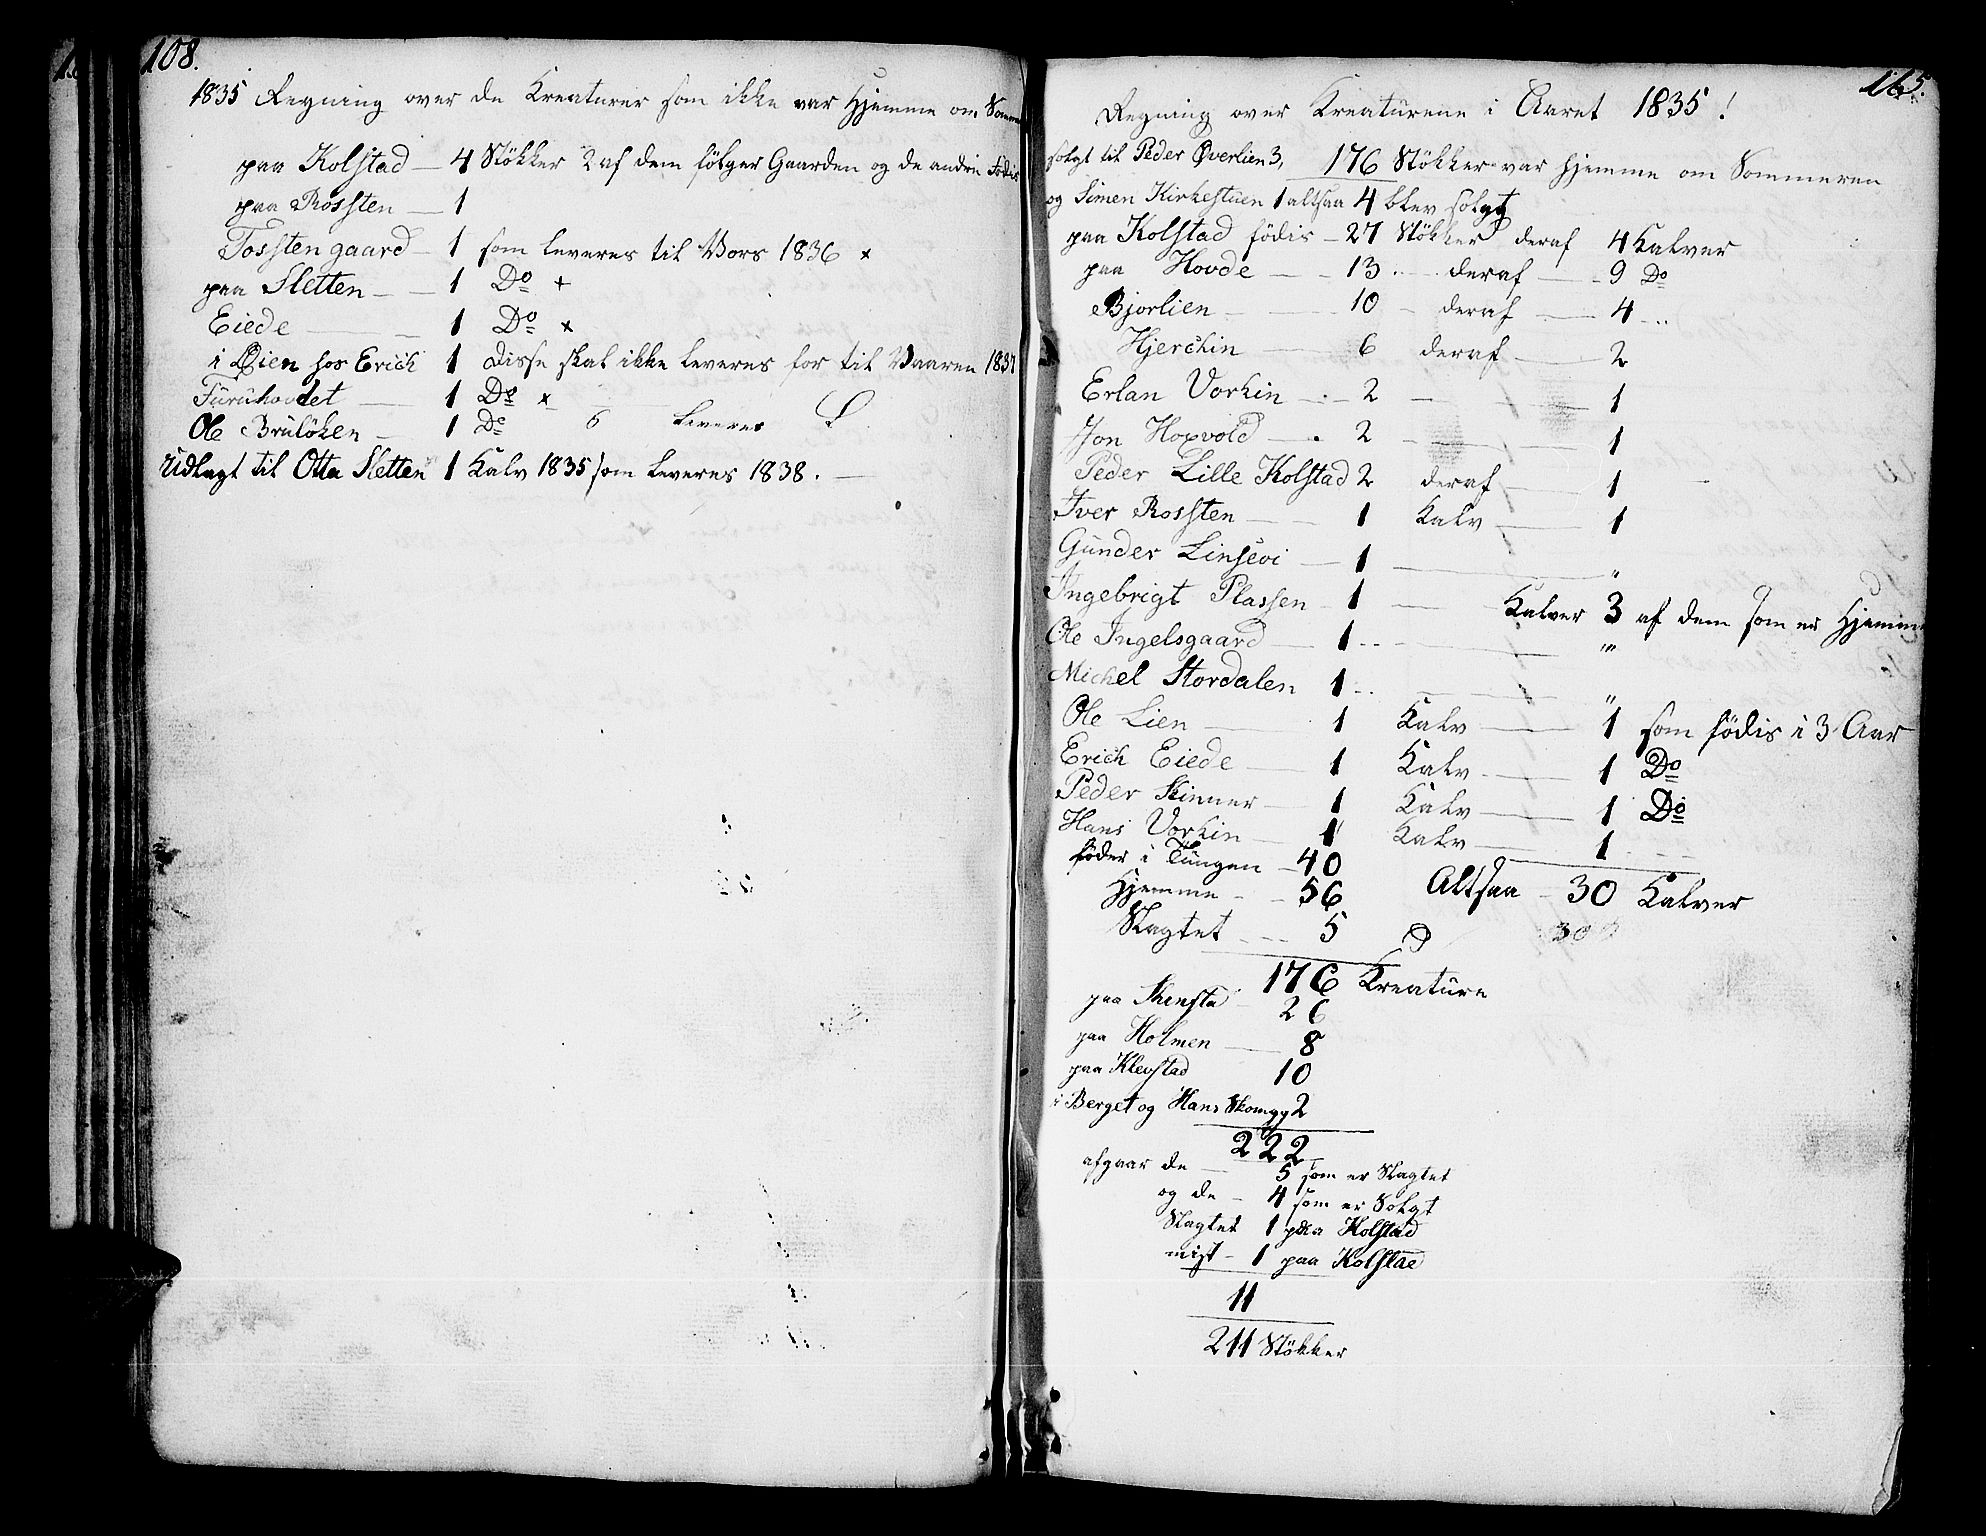 108.
1835 Regning over de Kreaturer som ikke var Hjemme om
paa Kolstad — 4 Støkker 2 af dem følger Gaarden og de andre fødis
paa Rossten — 1
Tossten gaard — 1 som leveres til Vors 1836 x
paa Sletten — 1 Do +
Eiede — 1 Do x
i Øien hos Erich 1 disse skal ikke leveres for til Vaaren 1837
Furuhovdet — 1 Do x
Ole Bruløken — 1 Do 6 leveres
Udlagt til Otta Sletten 1 Kalv 1835 som leveres 1838.
165.
Regning over Kreaturene i Aaret 1835!
solgt til Peder Øverlien 3, 176 Støkker var hjemme om Sommeren
og Simen Kirkestuen 1 altsaa 4 blev solgt
paa Kolstad födis — 27 Støkker deraf 4 Kalver
paa Hovde — 13 deraf — 9 Do
Bjorlien — 10 — deraf — 4
Hjerchin — 6 deraf — 2
Erlan Vorkin — 2 — 1
Jon Hoxvold — 2 — 1
Peder Lille Kolstad 2 deraf — 1
Iver Rossten — 1 Kalv — 1
Gunder Linsevi — 1 — "
Ingebrigt Plassen — 1 — Kalver 3 af dem som er Hjemme
Ole Ingelsgaard — 1 — "
Michel Stordalen 1 — "
Ole Lien — 1 Kalv — 1 som födis i 3 Aar
Erich Eiede — 1 Kalv — 1 Do
Peder Skinner — 1 Kalv — 1 Do
Hans Vorkin — 1 Kalv — 1
föder i Tungen — 40
Hjemme — 56 Altsaa — 30 Kalver
Slagtet — 5 30
176 Kreature
paa Skensta 26
paa Holmen — 8
paa Klevstad 10
i Berget og Hans Skomgg 2
222
afgaar de — 5 som er Slagtet
og de — 4 som er Solgt
Slagtet 1 paa Kolstad
mist — 1 paa Kolstad
11
211 Støkker